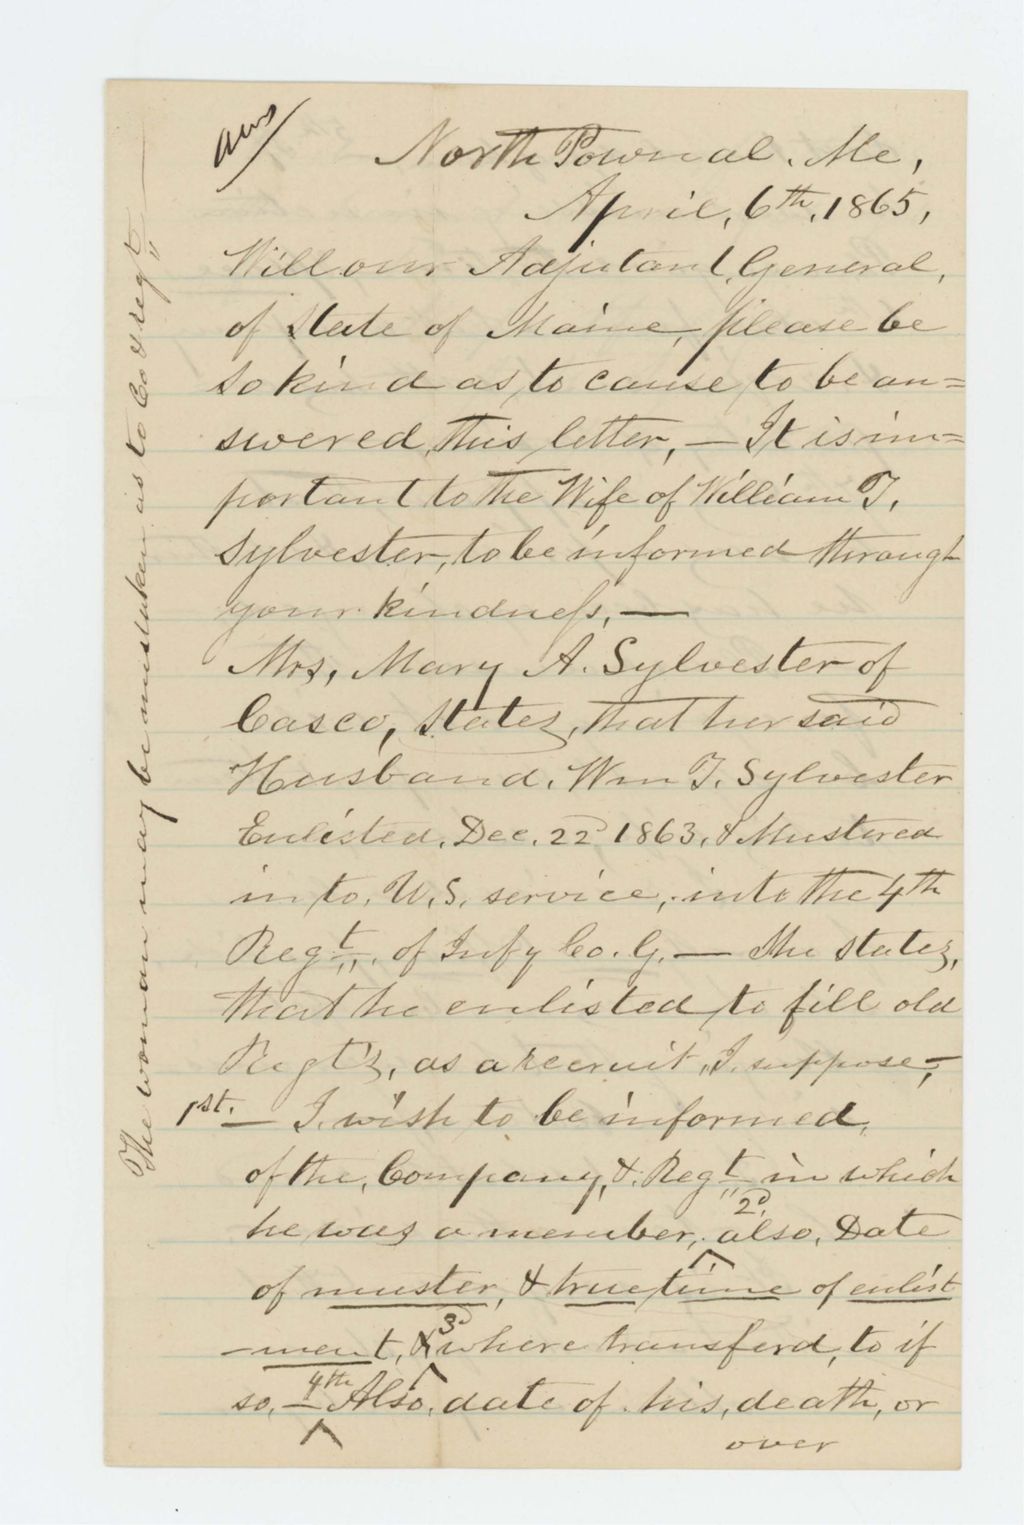 ans
North Pownal, Me,
April, 6th, 1865,
Will our Adjutant, General,
of State of Maine, please be
so kind as to cause to be an=
swered, this letter, — It is im=
portant to the Wife of William T,
Sylvester, to be informed through
your kindness, —
Mrs, Mary A. Sylvester of
Casco, States, that her said
Husband, Wm T, Sylvester
Enlisted, Dec, 22d 1863, & Mustered
in to, U, S, service, into the 4th
Regt, of Infy Co. G, — She states,
that he enlisted to fill old
Regt's, as a recruit, I, suppose, —
1st. — I, wish to be informed,
of the, Company, & Regt in which
he was a member, 2d, also, Date
of muster, & true time of enlist
-ment, & 3d where transferd, to if
so, — 4th Also, date of his, death, or
over
The woman may be mistaken as to Co & regt